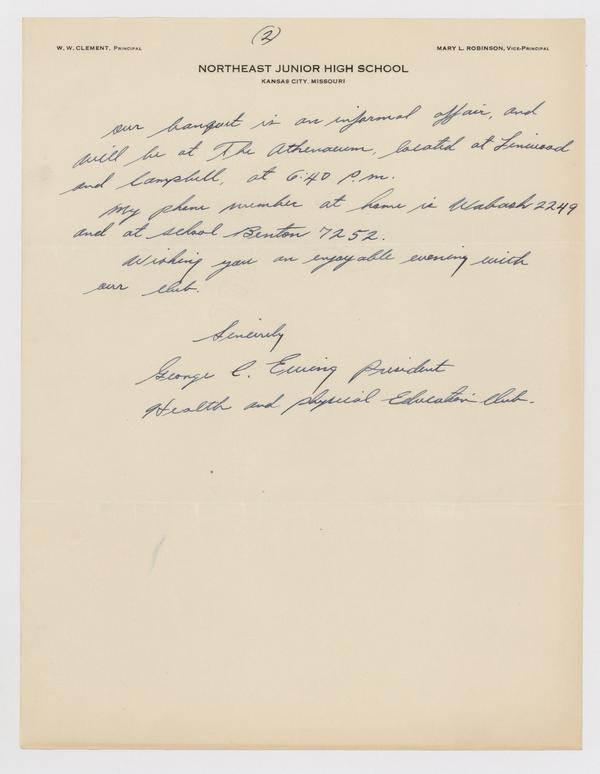 (2)
W. W. CLEMENT, PRINCIPAL
MARY L. ROBINSON, VICE-PRINCIPAL
NORTHEAST JUNIOR HIGH SCHOOL
KANSAS CITY, MISSOURI
our banquet is an informal affair, and
will be at The Athenaeum, located at Linwood
and Campbell, at 6:40 P.m.
My phone number at home is Wabash 2249
and at school Benton 7252.
Wishing you an enjoyable evening with
our club.
Sincerely
George C. Ewing President
Health and physical Education Club.